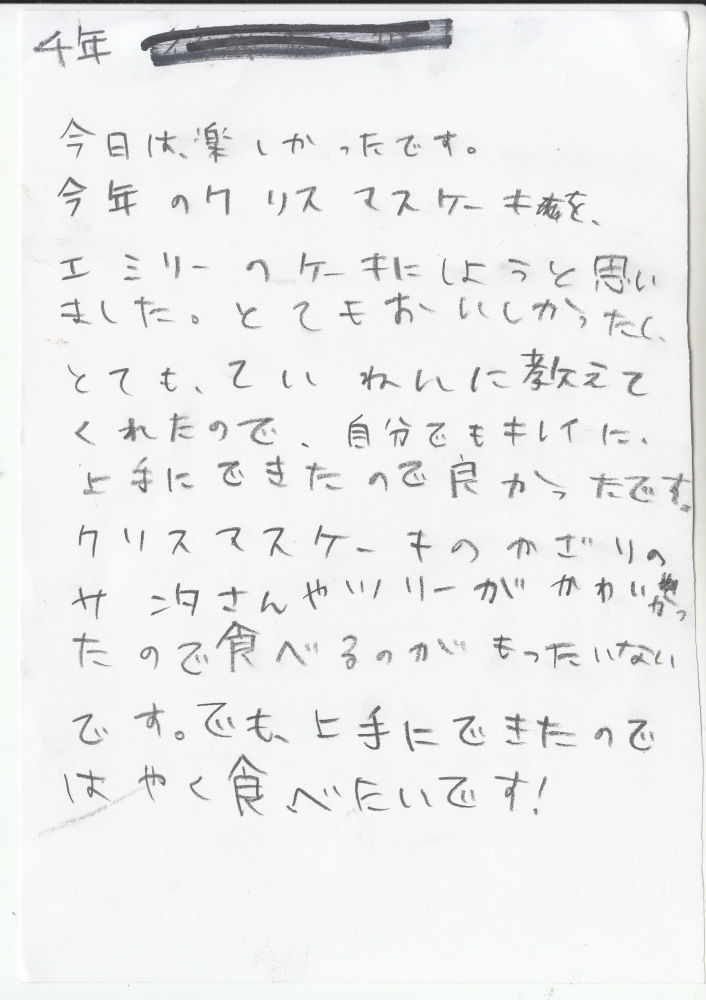 4年
今日は、楽しかったです。
今年のクリスマスケーキを、
エミリーのケーキにしようと思い
ました。とてもおいしかったし、
とても、ていねいに教えて
くれたので、自分でもキレイに、
上手にできたので良かったです。
クリスマスケーキのかざりの
サンタさんやツリーがかわいかっ
たので食べるのがもったいない
です。でも、上手にできたので
はやく食べたいです!